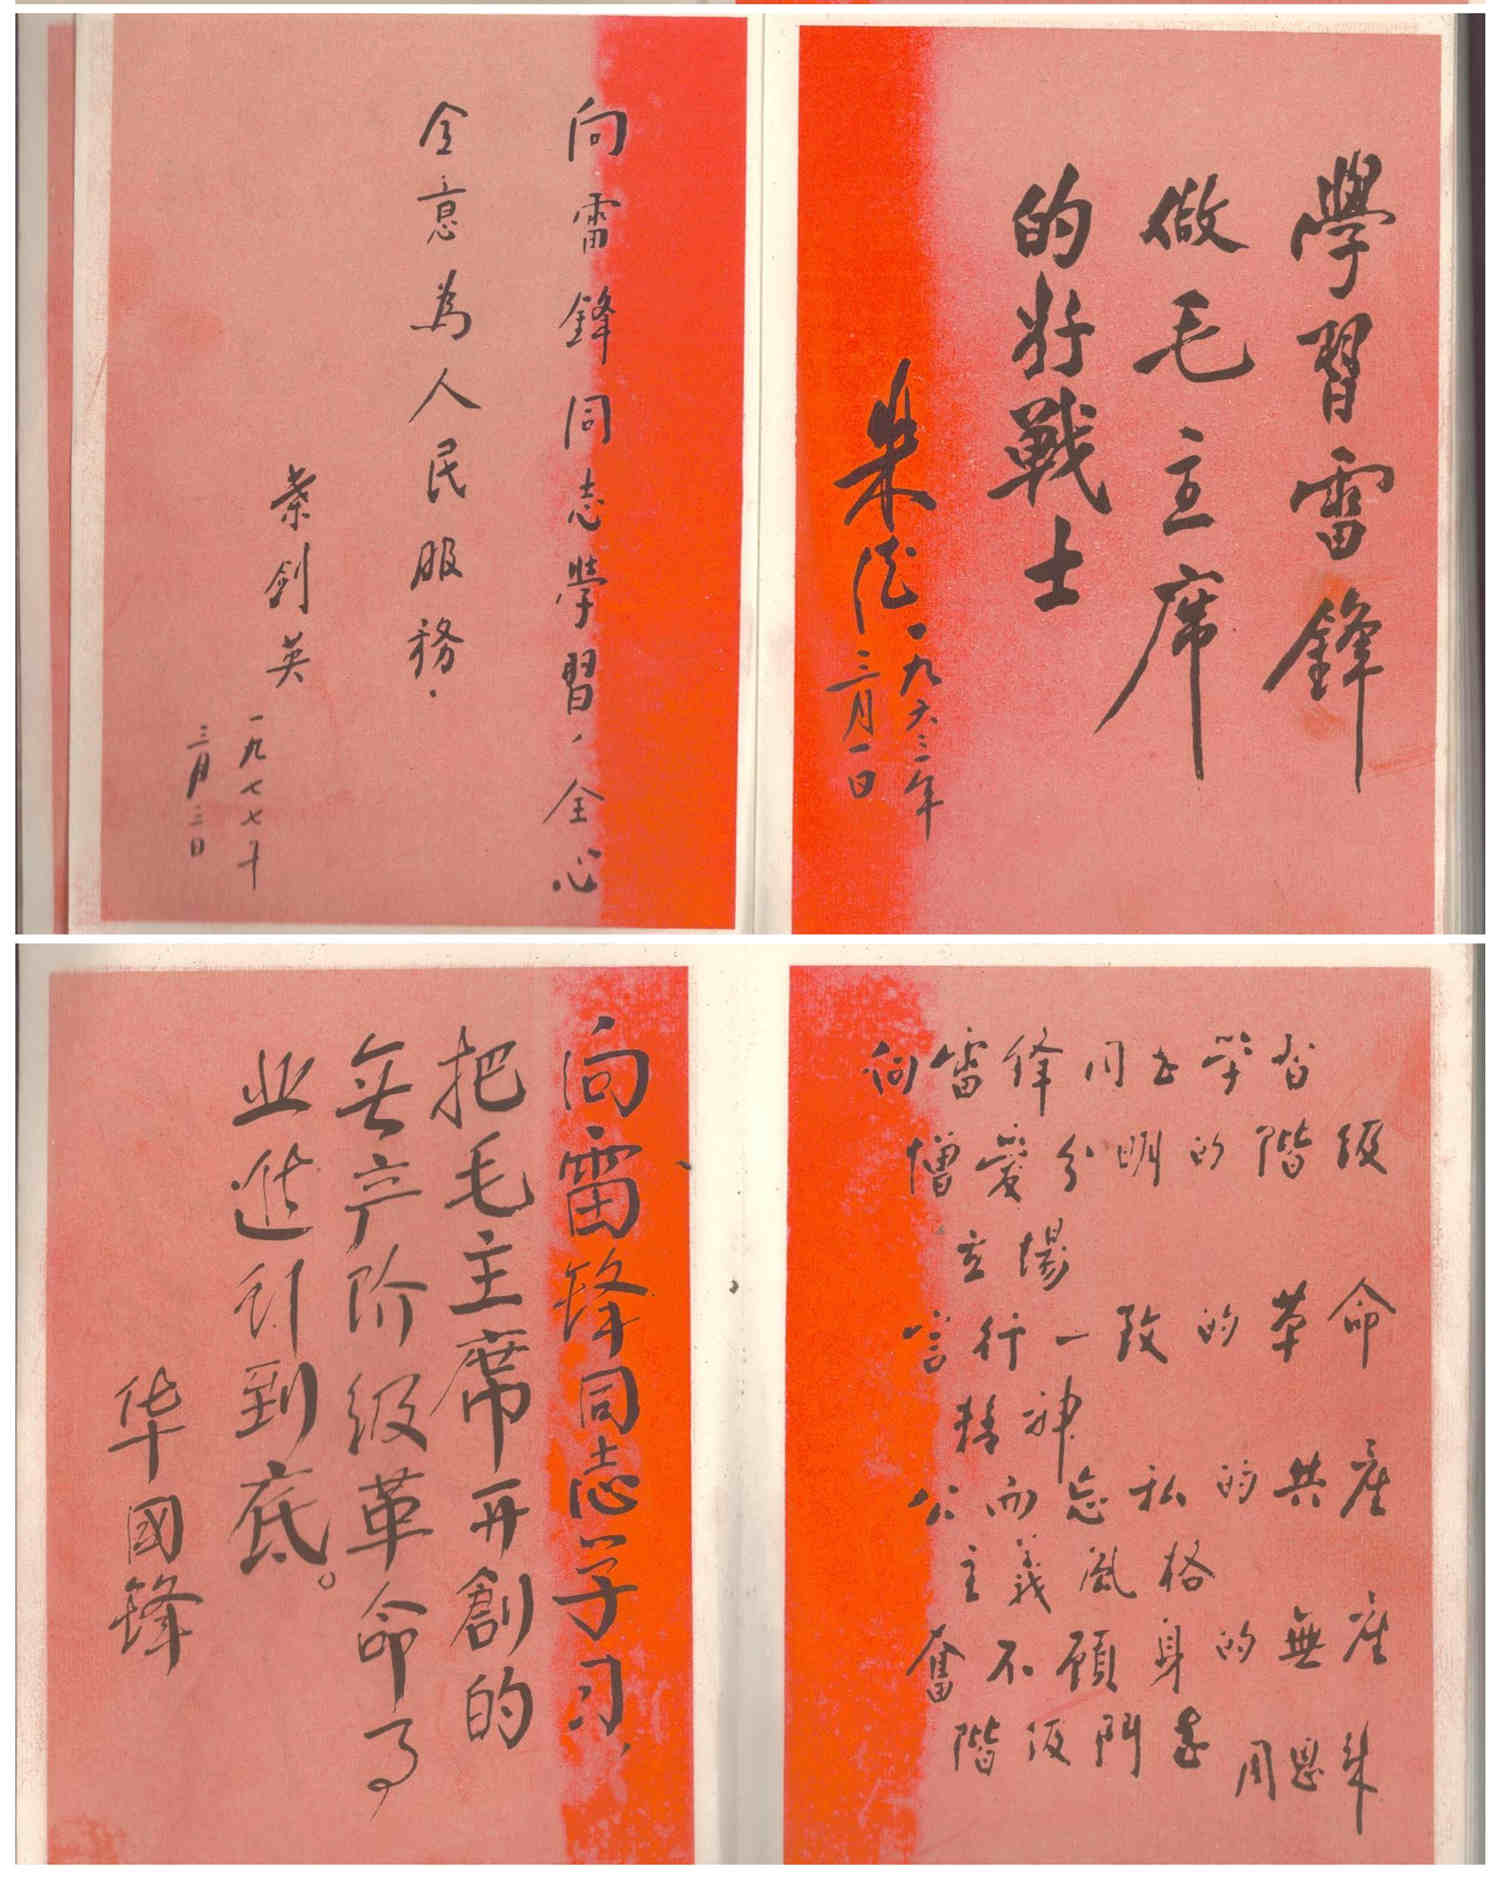 學習雷鋒
做毛主席
的好戰士
朱德
一九六三年
三月一日
向雷鋒同志學習，全心
全意為人民服務．
葉劍英
一九七七年
三月三日
向雷锋同志学習
憎愛分明的階级
立場
言行一致的革命
精神
公而忘私的共産
主義風格
奮不顧身的無産
階级鬥志
周恩来
向雷锋同志学习，
把毛主席开創的
无产阶级革命事
业進行到底。
华國锋